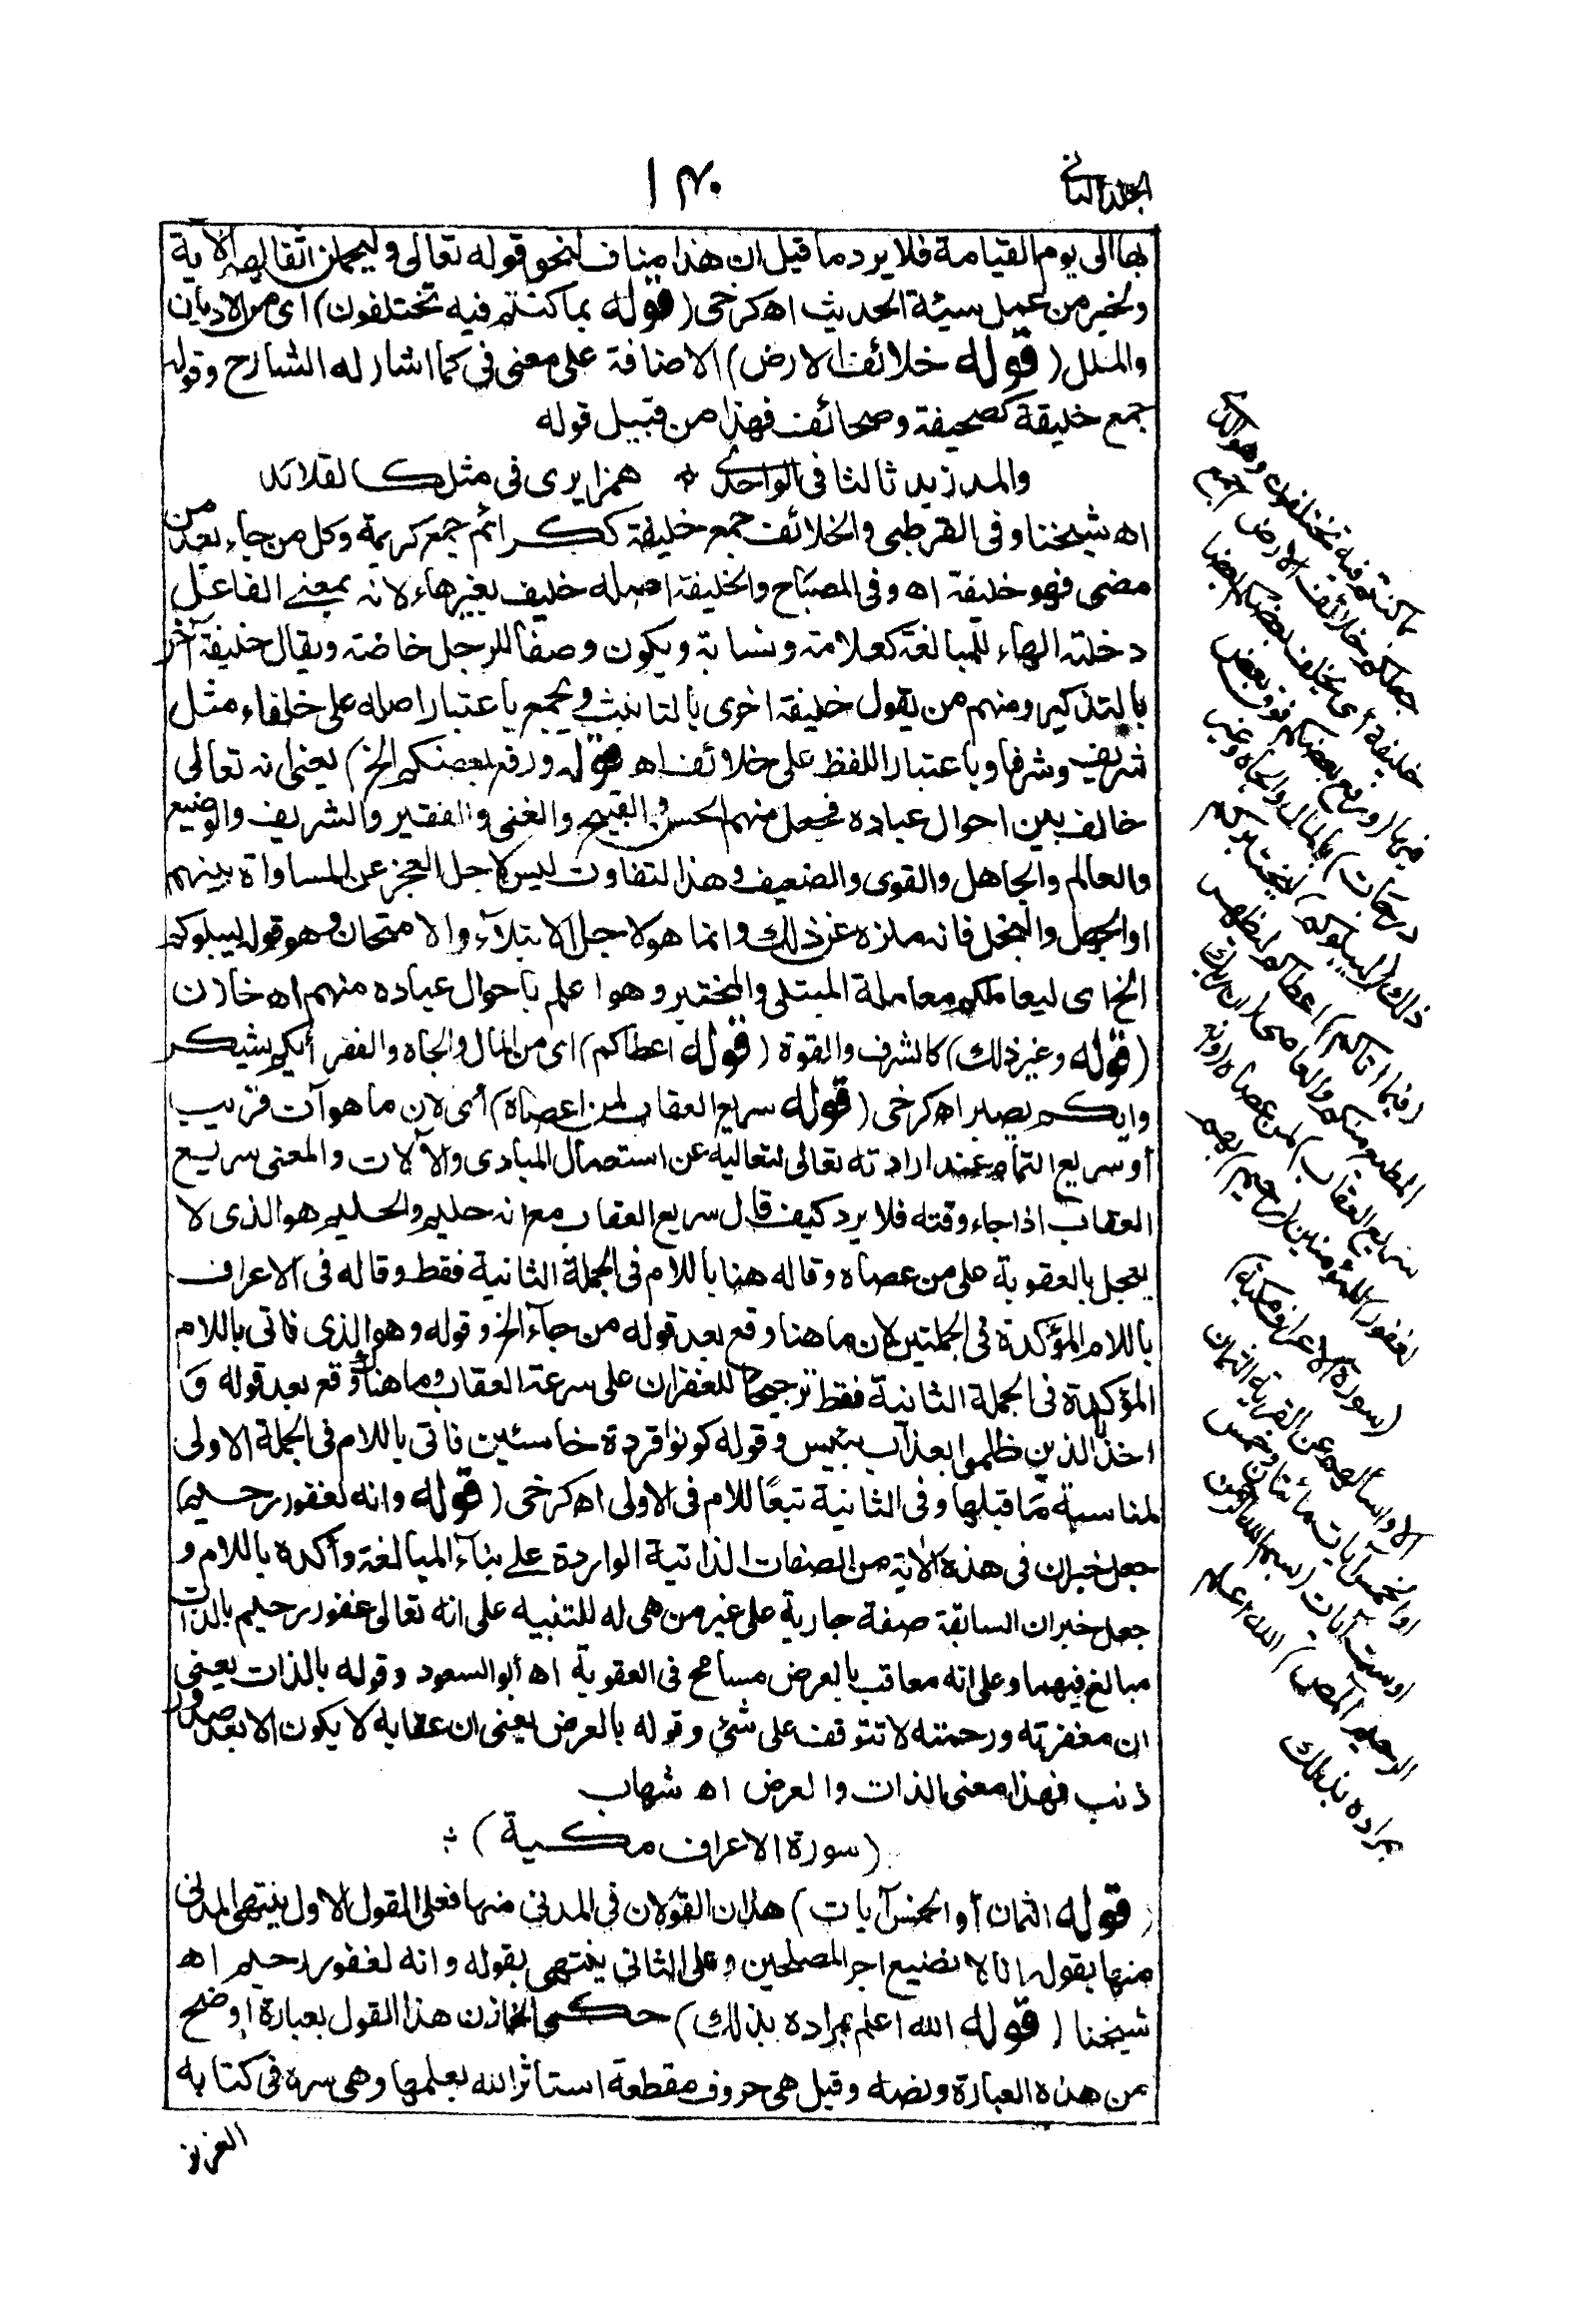 الجلد الثاني
١٣٠
بها الى يوم القيامة فلا يرد ما قيل ان هذا مناف لنحو قوله تعالى وليحملن اثقالهم الآية
ولخبر من عمل سيئة الحديث اه كرخى (قوله بما كنتم فيه تختلفون) اى من الاديان
والملل (قوله خلائف الارض) الاضافة على معنى فى كما اشار له الشارح وقوله
جمع خليفة كصحيفة وصحائف فهذا من قبيل قوله
والمد زيد ثالثا فى الواحد ٭ همزا يرى فى مثل كالقلائد
اه شيخنا وفى القرطبى والخلائف جمع خليفة ككرائم جمع كريمة وكل من جاء بعد من
مضى فهو خليفة اه وفى المصباح والخليفة اصله خليف بغير هاء لانه بمعنى الفاعل
دخلته الهاء للمبالغة كعلامة ونسابة ويكون وصفا للرجل خاصة ويقال خليفة آخر
بالتذكير ومنهم من يقول خليفة اخرى بالتانيث ويجمع باعتبار اصله على خلفاء مثل
شريف وشرفاء وباعتبار اللفظ على خلائف اه قوله ورفع بعضكم الخ) يعنى انه تعالى
خالف بين احوال عباده فجعل منهم الحسن والقبيح والغنى والفقير والشريف والوضيع
والعالم والجاهل والقوى والضعيف وهذا التفاوت ليس لاجل العجز عن المساواة بينهم
او الجهل والبخل فانه منزه عن ذلك وانما هو لاجل الابتلآء والامتحان وهو قوله ليبلوكم
الخ اى ليعاملكم معاملة المبتلى والمختبر وهو اعلم باحوال عباده منهم اه خازن
(قوله وغير ذلك) كالشرف والقوة (قوله اعطاكم) اى من المال والجاه والفقر أيكم يشكر
وايكم يصبر اه كرخى (قوله سريع العقاب لمن اعصاه) أى لان ما هو آت قريب
أو سريع التمام عند ارادته تعالى لتعاليه عن استعمال المبادى والآلات والمعنى سريع
العقاب اذا جاء وقته فلا يرد كيف قال سريع العقاب مع انه حليم والحليم هو الذى لا
يعجل بالعقوبة على من عصاه وقاله هنا باللام فى الجملة الثانية فقط وقاله فى الاعراف
باللام المؤكدة فى الجملتين لان ما هنا وقع بعد قوله من جآء الخ وقوله وهو الذى فاتى باللام
المؤكدة فى الجملة الثانية فقط ترجيحا للغفران على سرعة العقاب وما هناك وقع بعد قوله و
اخذنا الذين ظلموا بعذآب بئيس وقوله كونوا قردة خاسئين فاتى باللام فى الجملة الاولى
لمناسبة مَا قبلها وفى الثانية تبعًا للام فى الاولى اه كرخى (قوله وانه لغفور رحيم)
جعل خبر ان فى هذه الآية من الصفات الذاتية الواردة على بنآء المبالغة وأكده باللام و
جعل خبر ان السابقة صفة جارية على غير من هى له للتنبيه على انه تعالى غفور رحيم بالذات
مبالغ فيهما وعلى انه معاقب بالعرض مسامح فى العقوبة اه أبو السعود وقوله بالذات يعنى
ان مغفرته ورحمته لا تتوقف على شئ وقوله بالعرض يعنى ان عقابه لا يكون الا بعد صدور
ذنب فهذا معنى الذات والعرض اه شهاب
(سورة الاعراف مكية) ؛
(قوله الثمان أو الخمس آيات) هذان القولان فى المدنى منها فعلى القول الاول ينتهى المدنى
منها بقوله انا لا نضيع اجر المصلحين وعلى الثانى ينتهى بقوله وانه لغفور رحيم اه
شيخنا (قوله الله اعلم بمراده بذلك) حكى الخازن هذا القول بعبارة اوضح
من هذه العبارة ونصه وقيل هى حروف مقطعة استاثر الله بعلمها وهى سره فى كتابه
العزيز
بما كنتم فيه تختلفون وهو الذى
جعلكم خلائف الارض جمع
خليفة أى يخلف بعضكم بعضا
فيها (ورفع بعضكم فوق بعض
درجات) بالمال والجاه وغير
ذلك (ليبلوكم) ليختبركم
(فيما آتاكم) اعطاكم ليظهر
المطيع منكم والعاصى (ان ربك
سريع العقاب) لمن عصاه (وانه
لغفور) للمؤمنين (رحيم) بهم
(سورة الاعراف مكية)
الا واسألهم عن القرية الثمان
او الخمس آيات مائتان وخمس
اوست آيات (بسم الله الرحمن
الرحيم المص) الله اعلم
بمراده بذلك